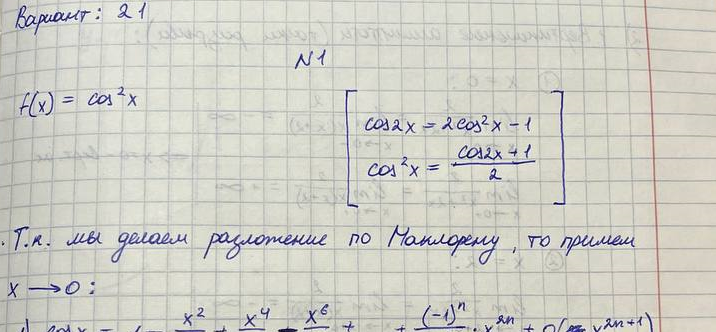 Вариант: 21
N1
f(x) = cos²x
cos2x = 2cos²x - 1
cos²x = (cos2x + 1)/2
Т.к. мы делаем разложение по Маклорену, то примем
x → 0:
cosx = 1 - x²/ + x⁴/ - x⁶/ + + (-1)ⁿ/ · x²ⁿ + o( x²ⁿ⁺¹)